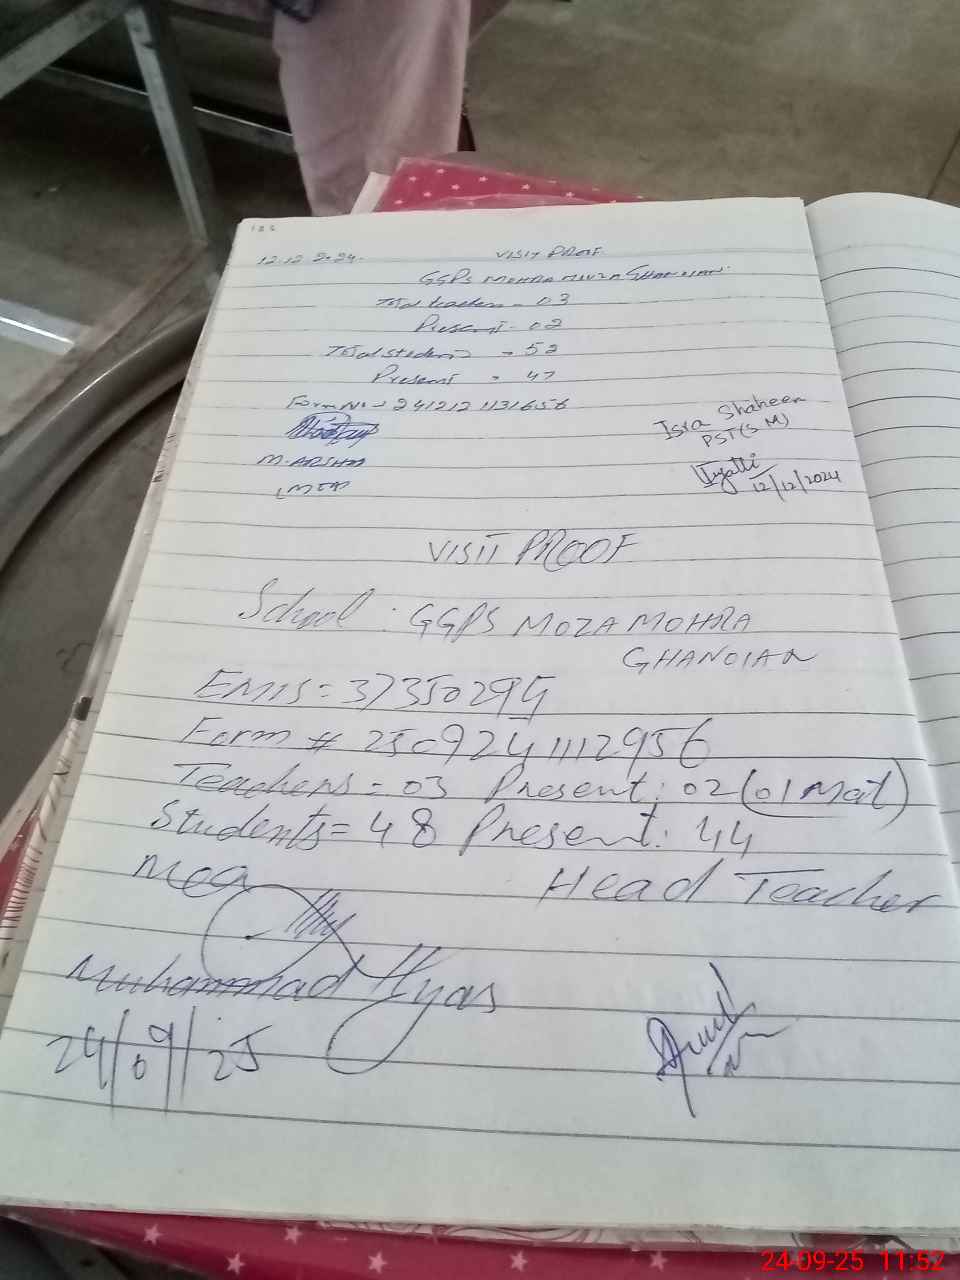 12.12.2024. VISIT PROOF
GGPS MOHRA MOZA GHANDIAN.
Total teachers - 03
Present - 02
Total students - 52
Present - 47
Form No - 241212 1131656
Isra Shaheen
PST (S M)
M. ARSHAD
12/12/2024
MEA
VISIT PROOF
School : GGPS MOZA MOHRA
GHANDIAN
EMIS = 37350295
Form # 2509241112956
Teachers = 03 Present: 02 (01 Mat)
Students = 48 Present: 44
Mea Head Teacher
Muhammad Ilyas
24/09/25
24-09-25 11:52